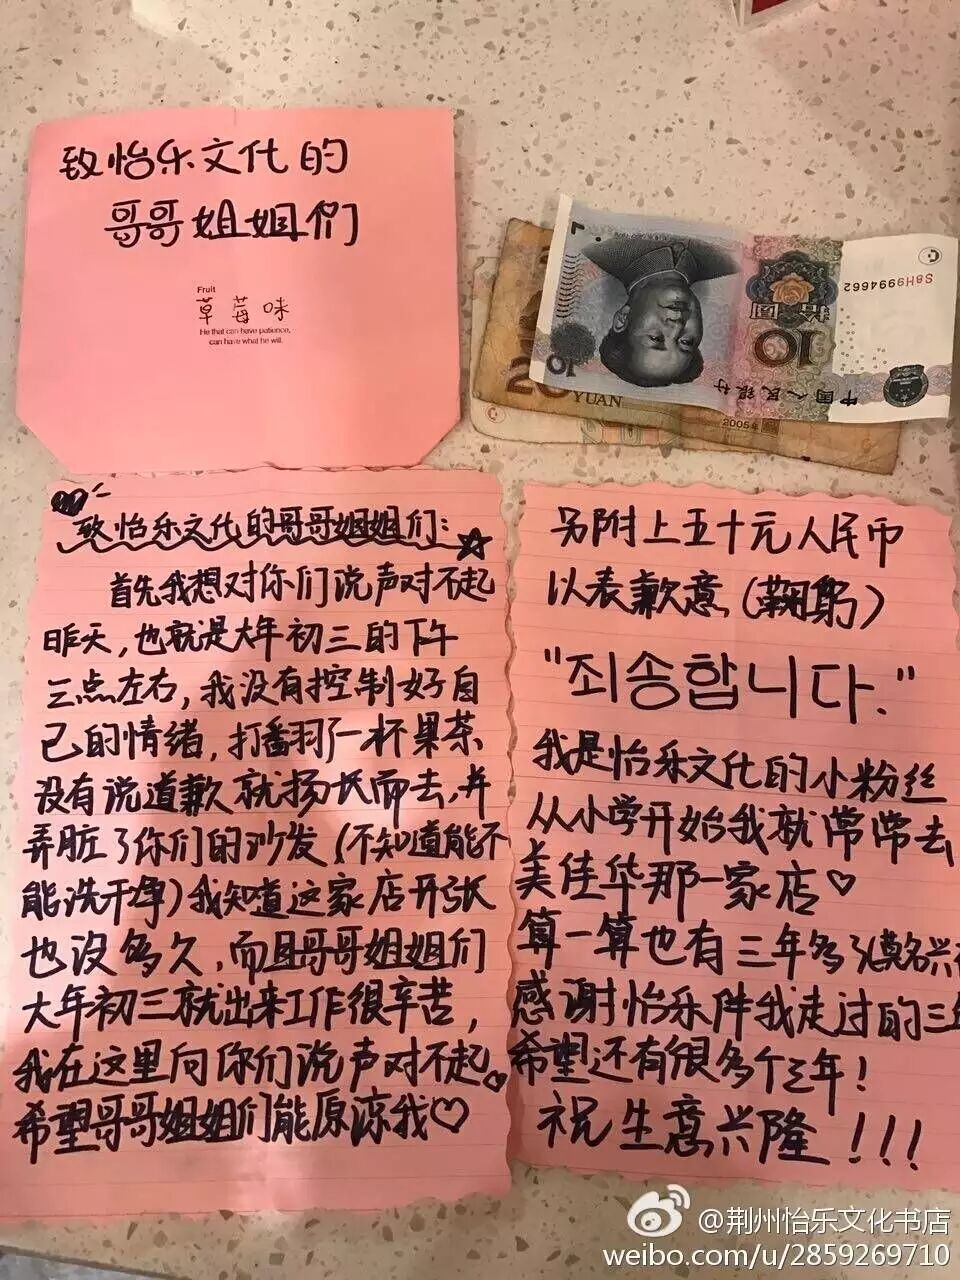 致怡乐文化的
哥哥姐姐们
Fruit
草莓味
He that can have patience,
can have what he will.
10
拾圆
中国人民银行
S8H9994662
20
YUAN
2005年
致怡乐文化的哥哥姐姐们：
首先我想对你们说声对不起
昨天，也就是大年初三的下午
三点左右，我没有控制好自
己的情绪，打翻了一杯果茶
没有说道歉就扬长而去，并
弄脏了你们的沙发（不知道能不
能洗干净）我知道这家店开张
也没多久，而且哥哥姐姐们
大年初三就出来工作很辛苦，
我在这里向你们说声对不起。
希望哥哥姐姐们能原凉我♡
另附上五十元人民币
以表歉意（鞠躬）
"죄송합니다."
我是怡乐文化的小粉丝
从小学开始我就常常去
美佳华那一家店♡
算一算也有三年多了（莫名兴
感谢怡乐伴我走过的三
希望还有很多个三年！
祝生意兴隆！！！
@荆州怡乐文化书店
weibo.com/u/2859269710